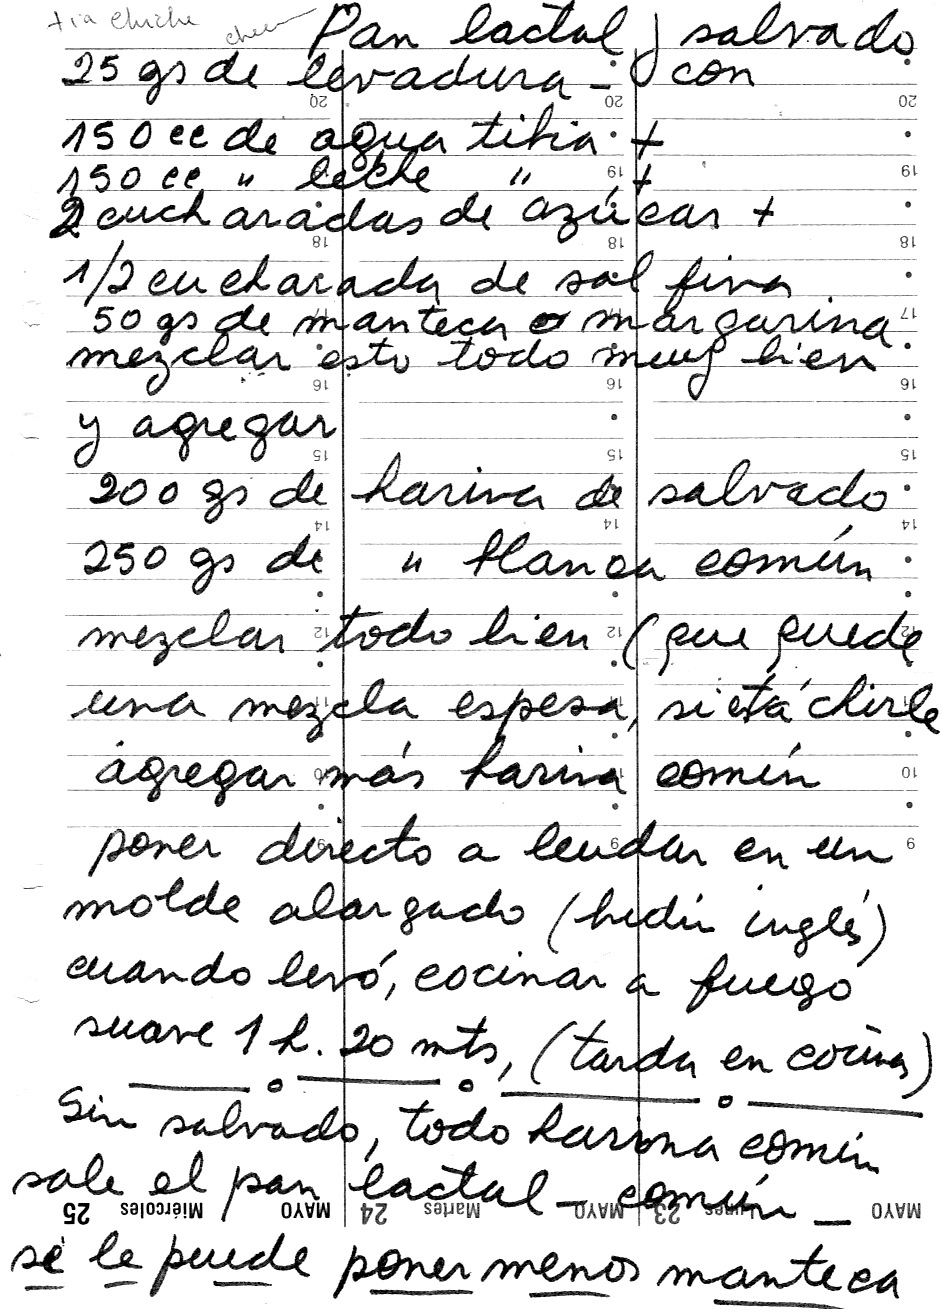 tia chiche
Pan lactal, salvado
25 gs de levadura - con
150 cc de agua tibia +
150 cc " leche " +
2 cucharadas de azúcar +
1/2 cucharada de sal fina
50 gs de manteca o margarina
mezclar esto todo muy bien
y agregar
200 gs de harina de salvado
250 gs de " blanca común
mezclar todo bien (que quede
una mezcla espesa, si etá chirle
agregar más harina común
poner directo a leudar en un
molde alargado (budín inglés)
cuando levó, cocinar a fuego
suave 1 h. 20 mts, (tarda en cocinar)
Sin salvado, todo harina común
sale el pan lactal - común -
25 Miércoles MAYO 24 Martes MAYO 23 Lunes MAYO
se le puede poner menos manteca
20 20 20
19 19
18 18 18
17
16 16 16
15 15 15
14 14 14
12 12 12
10 10
9 9 9